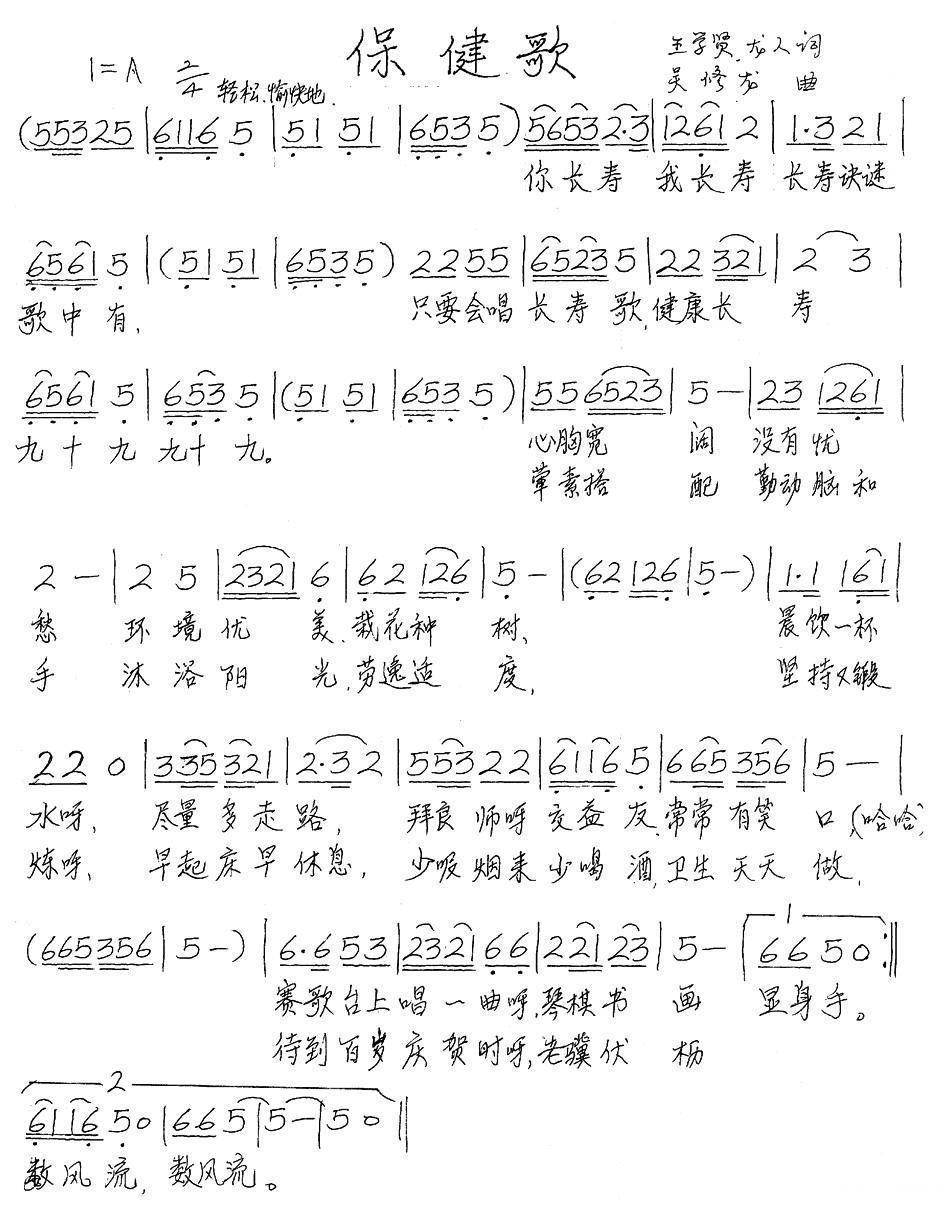 保健歌
1=A 2/4 轻松、愉快地
王学贤、龙人词
吴修龙 曲
(553325|6116 5|51 51|6535)56532·3|1261 2|1·3 21|
你长寿 我长寿 长寿诀谜
6561 5|(51 51|6535) 2255|65235|22 321|2 3|
歌中有, 只要会唱长寿歌,健康长寿
6561 5|653 5|(51 51|653 5)|556523|5-|23 1261|
九十九 九十九。 心胸宽阔 没有忧
荤素搭配 勤动脑和
2-|2 5|2321 6|62 126|5-|(62 126|5-)|1·1 161|
愁 环境优美、栽花种树、 晨饮一杯
手 沐浴阳光,劳逸适度, 坚持又锻
22 0|335321|2·32|55322|6116 5|665356|5-|
水呀、 尽量多走路, 拜良师呀交益友,常常有笑口(哈哈)
炼呀、 早起床早休息, 少吸烟来少喝酒,卫生天天做,
(665356|5-)|6·653|23·21 66|221 23|5-|1 6650:||
赛歌台上唱一曲呀,琴棋书画 显身手。
待到百岁庆贺时呀,老骥伏枥
2
6116 50|665|5-|50||
数风流, 数风流。